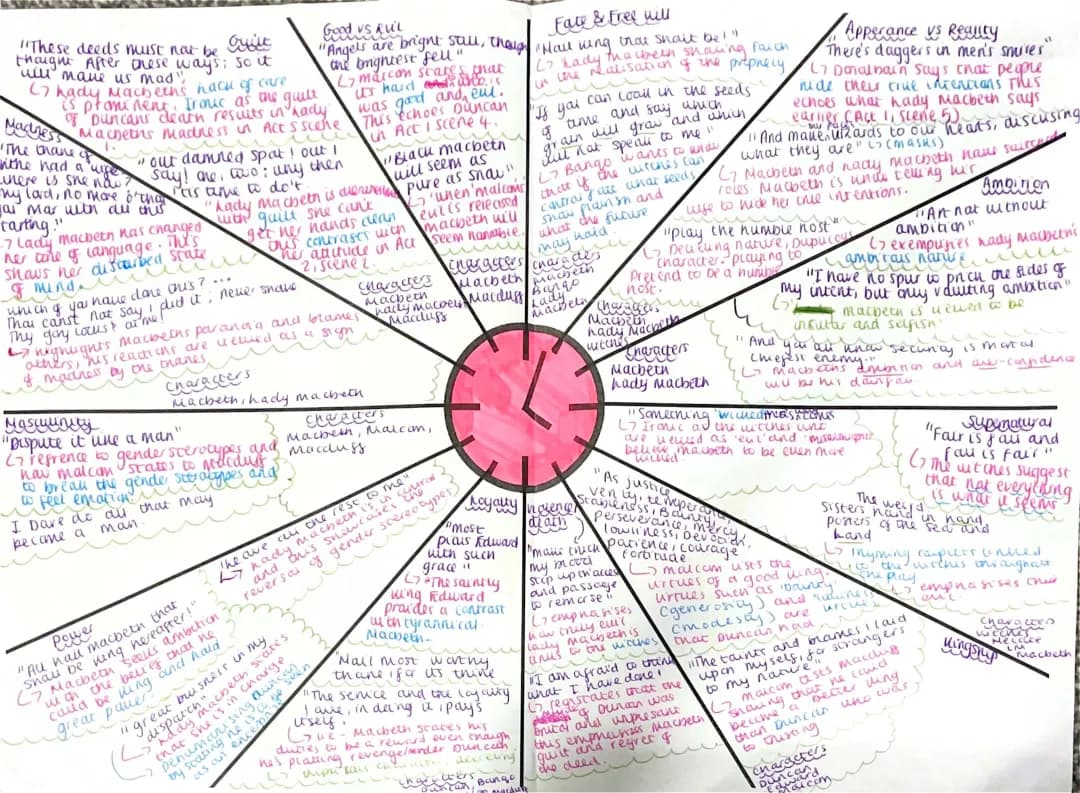 Guilt
"These deeds must not be
thought After these ways; so it
will make us mad"
↳ Lady Macbeths lack of care
is prominent. Ironic as the guilt
of Duncans death results in Lady
Macbeths Madness in Act 5 scene
1.
Good vs Evil
"Angels are bright still, though
the brightest fell"
↳ malcom states that
it's hard
was good and evil.
This echoes Duncan
in Act 1 scene 4.
"Black macbeth
will seem as
pure as snow"
↳ 'when' malcoms
evil is released
macbeth will
seem
Characters
Macbeth
Macduff
Fate & Free will
"Hail king that shalt be!"
↳ Lady Macbeth sharing faith
in the realisation of the prophecy
"If you can look in the seeds
of time and say which
grain will grow and which
will not speak to me"
↳ Banqo wants to know
that if the witches can
what seeds
and
what the future
may hold
Characters
Macbeth
Banqo
Lady
Macbeth
Apperance vs Reality
"There's daggers in men's smiles"
↳ Donalbain says that people
hide their true intentions This
echoes what Lady Macbeth says
earlier (Act 1, Scene 5)
"And make vizards to our hearts, discusing
what they are" ↳ (masks)
↳ Macbeth and Lady macbeth have
roles Macbeth is telling his
wife to hide her true intentions.
"play the humble host"
↳ nature,
character. playing to
Pretend to be a humble
host.
Characters
Macbeth
Lady Macbeth
witches
Ambition
"Art not without
ambition"
↳ exemplifies Lady Macbeth's
ambitious nature
"I have no spur to prick the sides of
my intent, but only vaulting ambition"
↳ Macbeth is viewed to be
and selfish!
"And you all know security is mortal
cheifest enemy."
↳ macbeths ambition and over-confidence
will be his downfall
Characters
Macbeth
Lady Macbeth
Madness
"The thane of
fithe had a wife
where is she now?
my lord, no more o'that
you mar with all this
starting."
↳ Lady macbeth has changed
her tone of language. This
shows her disturbed state
of mind.
"out damned spot! out I
say! one, two: why then
'tis time to do't
"Lady macbeth is
with guilt she can't
get her hands clean
this contrasts with
her attitude in Act
2, scene 2.
which of you have done this? ....
Thou canst not say I did it; never shake
Thy gory locks! at me
↳ Highlights Macbeths paranoia and blames
others, his reactions are viewed as a sign
of madness by the thanes.
Characters
Macbeth, Lady macbeth
Characters
Macbeth
Lady Macbeth
Macduff
Masculinity
"Dispute it like a man"
↳ refrence to gender sterotypes and
how malcom states to Macduff
to break the gender sterotypes and
to feel emotion
I Dare do all that may
become a man.
Characters
Macbeth, Malcom,
Macduff
"Leave all the rest to me"
↳ Lady Macbeth is in control
and this showcases the
reversal of gender stereotypes
Power
"All hail macbeth that
shall be king hereafter!"
↳ Macbeth feels ambition
in the belief that he
could be king and hold
great power
"great business in my
dispatch"
↳ Lady macbeth states
that she is in charge
Loyalty
"Most
pious Edward
with such
grace"
↳ "The saintly
king Edward
provides a contrast
with tyrannical
Macbeth.
"Hail most worthy
thane! for its thine
"The service and the loyalty
I owe, in doing it pays
itself.
↳ i.e - Macbeth states his
duties to be a reward even though
he's plotting Duncan
Characters
Duncan, Banqo
death
"make thick
my blood
stop up th'access
and passage
to remorse"
↳ emphasises
how truly evil
Lady macbeth is
links to the witches
"I am afraid to think
what I have done"
↳ reinstates that the
of Duncan was
brutal and unpleasant
this emphasises Macbeth
guilt and regret of
the deed.
"Something wicked this
↳ Ironic as the witches who
are viewed as 'evil' and
believe macbeth to be even more
wicked
Supernatural
"Fair is foul and
foul is fair"
↳ The witches suggest
that not everything
is what it seems
The weird
sisters hand in hand
posters of the sea and
land
↳ rhyming couplets linked
to the witches throughout
the play
↳ emphasises
Characters
witches
Hecate
Macbeth
Kingship
"As justice,
verity, temperance,
stableness, Bounty,
perseverance, mercy,
lowliness, Devotion,
patience, courage
fortitude
↳ malcom uses the
virtues of a good king.
virtues such as 'bounty'
(generosity) and 'lowliness'
(modesty) are virtues
that Duncan had
"The taints and blames I laid
upon myself, for strangers
to my nature"
↳ malcom tests macduff
showing that he could
become a better king
than Duncan who was
to trusting
Characters
Duncan
Edward
Malcom